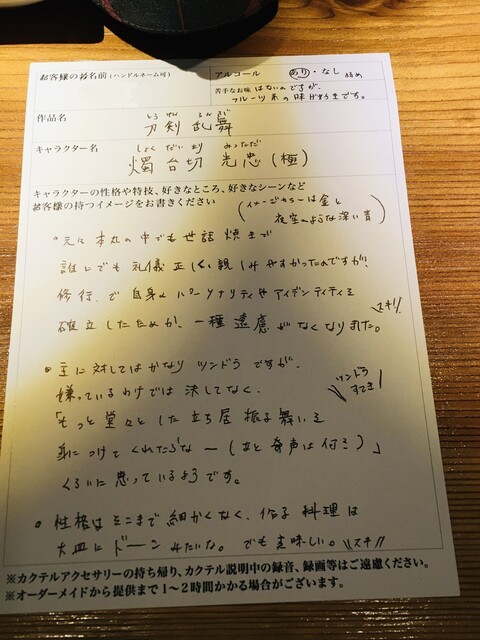 お客様のお名前(ハンドルネーム可)
アルコール
あり・なし 弱め
苦手なお味はないのですが、
フルーツ系の味が好きです。
作品名
とうけん らんぶ
刀剣 乱舞
キャラクター名
しょくだいきり みつただ
燭台切 光忠(極)
キャラクターの性格や特技、好きなところ、好きなシーンなど
お客様の持つイメージをお書きください
(イメージカラーは金と
夜空のような深い青)
元は本丸の中でも世話焼きで
誰にでも礼儀正しく、親しみやすかったのですが、
修行で自身のパーソナリティやアイデンティティを
確立したためか、一種遠慮がなくなりました。
スキ!
主に対してはかなりツンドラですが、
嫌っているわけでは決してなく、
ツンドラ
すてき!
「もっと堂々とした立ち居振る舞いを
身につけてくれたらな〜(主と発声は付く)」
くらいに思っているようです。
性格はそこまで細かくなく、作る料理は
大皿にドーンみたいな。でも美味しい。スキ
※カクテルアクセサリーの持ち帰り、カクテル説明中の録音、録画等はご遠慮ください。
※オーダーメイドから提供まで1〜2時間かかる場合がございます。